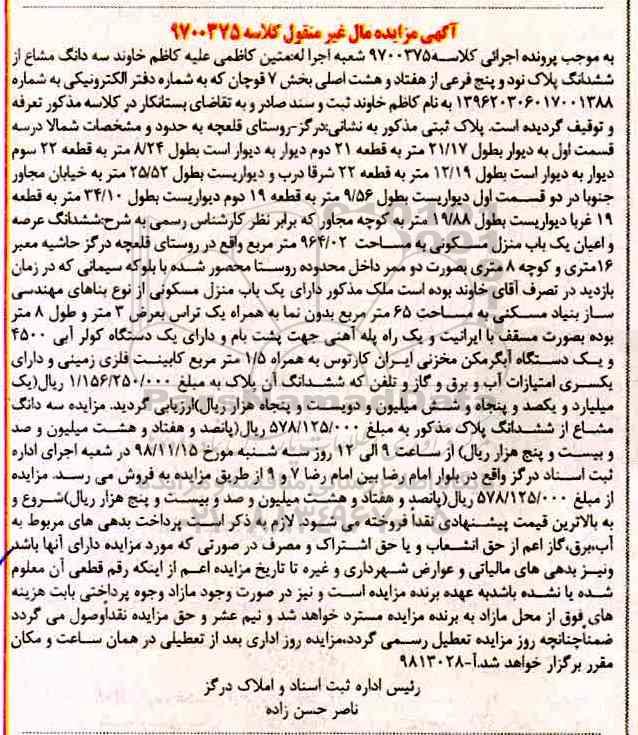 آگهی مزایده مال غیر منقول کلاسه ۹۷۰۰۳۷۵
به موجب پرونده اجرائی کلاسه۹۷۰۰۳۷۵ شعبه اجرا له:متین کاظمی علیه کاظم خاوند سه دانگ مشاع از
ششدانگ پلاک نود و پنج فرعی از هفتاد و هشت اصلی بخش ۷ قوچان که به شماره دفتر الکترونیکی به شماره
۱۳۹۶۲۰۳۰۶۰۱۷۰۰۱۳۸۸ به نام کاظم خاوند ثبت و سند صادر و به تقاضای بستانکار در کلاسه مذکور تعرفه
و توقیف گردیده است. پلاک ثبتی مذکور به نشانی:درگز-روستای قلعچه به حدود و مشخصات شمالا درسه
قسمت اول به دیوار بطول ۲۱/۱۷ متر به قطعه ۲۱ دوم دیوار به دیوار است بطول ۸/۲۴ متر به قطعه ۲۲ سوم
دیوار به دیوار است بطول ۱۲/۱۹ متر به قطعه ۲۲ شرقا درب و دیواریست بطول ۲۵/۵۲ متر به خیابان مجاور
جنوبا در دو قسمت اول دیواریست بطول ۹/۵۶ متر به قطعه ۱۹ دوم دیواریست بطول ۳۴/۱۰ متر به قطعه
۱۹ غربا دیواریست بطول ۱۹/۸۸ متر به کوچه مجاور که برابر نظر کارشناس رسمی به شرح:ششدانگ عرصه
و اعیان یک باب منزل مسکونی به مساحت ۹۶۴/۰۲ متر مربع واقع در روستای قلعچه درگز حاشیه معبر
۱۶متری و کوچه ۸ متری بصورت دو ممر داخل محدوده روستا محصور شده با بلوکه سیمانی که در زمان
بازدید در تصرف آقای خاوند بوده است ملک مذکور دارای یک باب منزل مسکونی از نوع بناهای مهندسی
ساز بنیاد مسکنی به مساحت ۶۵ متر مربع بدون نما به همراه یک تراس بعرض ۳ متر و طول ۸ متر
بوده بصورت مسقف با ایرانیت و یک راه پله آهنی جهت پشت بام و دارای یک دستگاه کولر آبی ۴۵۰۰
و یک دستگاه آبگرمکن مخزنی ایران کارتوس به همراه ۱/۵ متر مربع کابینت فلزی زمینی و دارای
یکسری امتیازات آب و برق و گاز و تلفن که ششدانگ آن پلاک به مبلغ ۱/۱۵۶/۲۵۰/۰۰۰ ریال(یک
میلیارد و یکصد و پنجاه و شش میلیون و دویست و پنجاه هزار ریال)ارزیابی گردید. مزایده سه دانگ
مشاع از ششدانگ پلاک مذکور به مبلغ ۵۷۸/۱۲۵/۰۰۰ ریال(پانصد و هفتاد و هشت میلیون و صد
و بیست و پنج هزار ریال) از ساعت ۹ الی ۱۲ روز سه شنبه مورخ ۹۸/۱۱/۱۵ در شعبه اجرای اداره
ثبت اسناد درگز واقع در بلوار امام رضا بین امام رضا ۷ و ۹ از طریق مزایده به فروش می رسد. مزایده
از مبلغ ۵۷۸/۱۲۵/۰۰۰ ریال(پانصد و هفتاد و هشت میلیون و صد و بیست و پنج هزار ریال)شروع و
به بالاترین قیمت پیشنهادی نقداً فروخته می شود. لازم به ذکر است پرداخت بدهی های مربوط به
آب،برق،گاز اعم از حق انشعاب و یا حق اشتراک و مصرف در صورتی که مورد مزایده دارای آنها باشد
ونیز بدهی های مالیاتی و عوارض شهرداری و غیره تا تاریخ مزایده اعم از اینکه رقم قطعی آن معلوم
شده یا نشده باشدبه عهده برنده مزایده است و نیز در صورت وجود مازاد وجوه پرداختی بابت هزینه
های فوق از محل مازاد به برنده مزایده مسترد خواهد شد و نیم عشر و حق مزایده نقداًوصول می گردد
ضمناًچنانچه روز مزایده تعطیل رسمی گردد،مزایده روز اداری بعد از تعطیلی در همان ساعت و مکان
مقرر برگزار خواهد شد.آ-۹۸۱۳۰۲۸
رئیس اداره ثبت اسناد و املاک درگز
ناصر حسن زاده